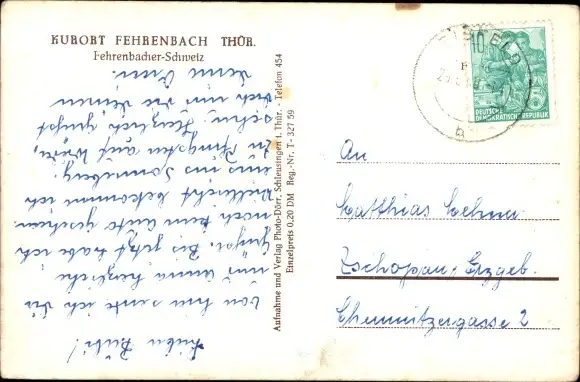 KURORT FEHRENBACH THÜR.
Fehrenbacher-Schweiz
Lieber Bubi!
Von hier sende ich dir
und Anna herzliche
Grüße. Bis jetzt habe ich
noch kein Auto gesehen.
Vielleicht bekomme ich
eins in Sonneberg.
Zu Pfingsten auf
sehn. Herzlich grüßt
dich und die deinen
deine
Aufnahme und Verlag Photo-Dörr, Schleusingen i. Thür. - Telefon 454
Einzelpreis 0,20 DM Reg.-Nr. T- 327 59
10
DEUTSCHE
DEMOKRATISCHE REPUBLIK
An
Matthias Lehne
Zschopau, Erzgeb.
Chemnitzergasse 2